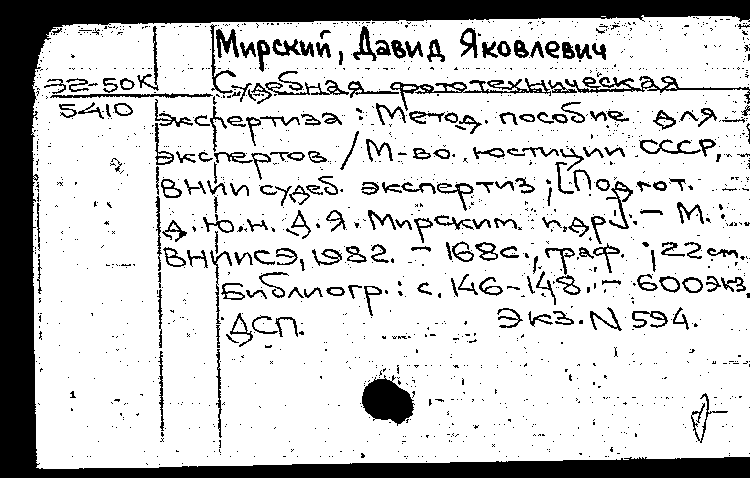 Мирский, Давид Яковлевич
32-50К Судебная фототехническая
5410 экспертиза : Метод. пособие для
экспертов / М-во юстиции СССР,
ВНИИ судеб. экспертиз ; [Подгот.
д.ю.н. Д.Я. Мирским и др]. - М. :
ВНИИСЭ, 1982. - 168с., граф. ; 22 cm.
Библиогр.: с. 146-148. - 600экз.
ДСП. Экз. N 594.
1